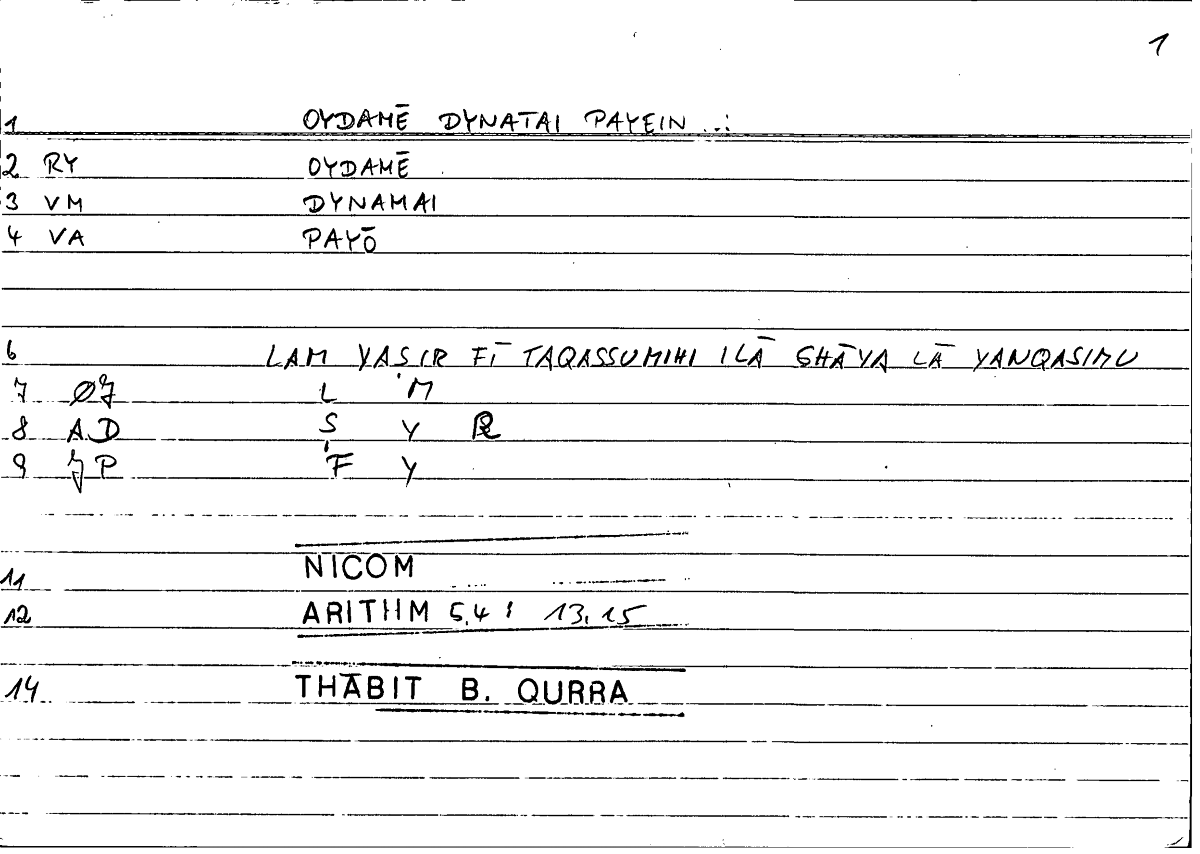 1
1 OYDAMĒ DYNATAI PAYEIN ..:
2 RY OYDAMĒ
3 VM DYNAMAI
4 VA PAYŌ
6 LAM YASIR FĪ TAQASSUMIHI ILĀ GHĀYA LĀ YANQASIMU
7 Ø7 L 'M
8 AD S Y R
9 7P 'F Y
11 NICOM
12 ARITHM 5,4 : 13,15
14 THĀBIT B. QURRA